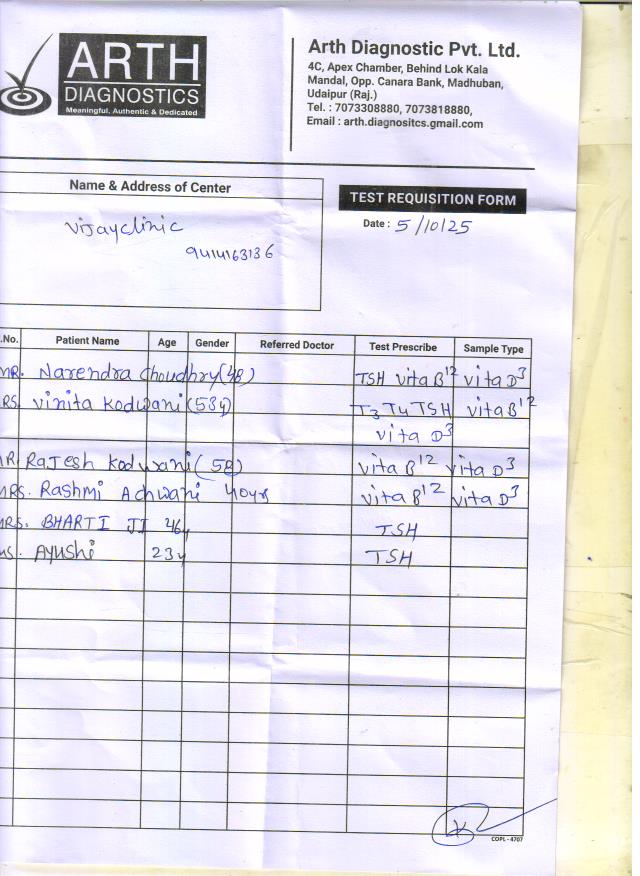 ARTH
DIAGNOSTICS
Meaningful, Authentic & Dedicated
Arth Diagnostic Pvt. Ltd.
4C, Apex Chamber, Behind Lok Kala
Mandal, Opp. Canara Bank, Madhuban,
Udaipur (Raj.)
Tel. : 7073308880, 7073818880,
Email : arth.diagnositcs.gmail.com
Name & Address of Center
TEST REQUISITION FORM
Vijayclinic
9414163136
Date : 5/10/25
.No. Patient Name Age Gender Referred Doctor Test Prescribe Sample Type
MR. Narendra Choudhry (48) TSH vita B12 vita D3
RS. Vinita Kodwani (53y) T3 T4 TSH vita B12
vita D3
MR. Rajesh Kodwani (58) vita B12 vita D3
MRS. Rashmi Achwani 40yrs vita B12 vita D3
MRS. BHARTI JI 46y TSH
MS. Ayushi 23y TSH
COPL - 4707